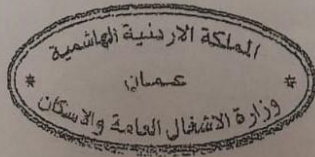 المملكة الاردنية الهاشمية
عمان
وزارة الاشغال العامة والاسكان